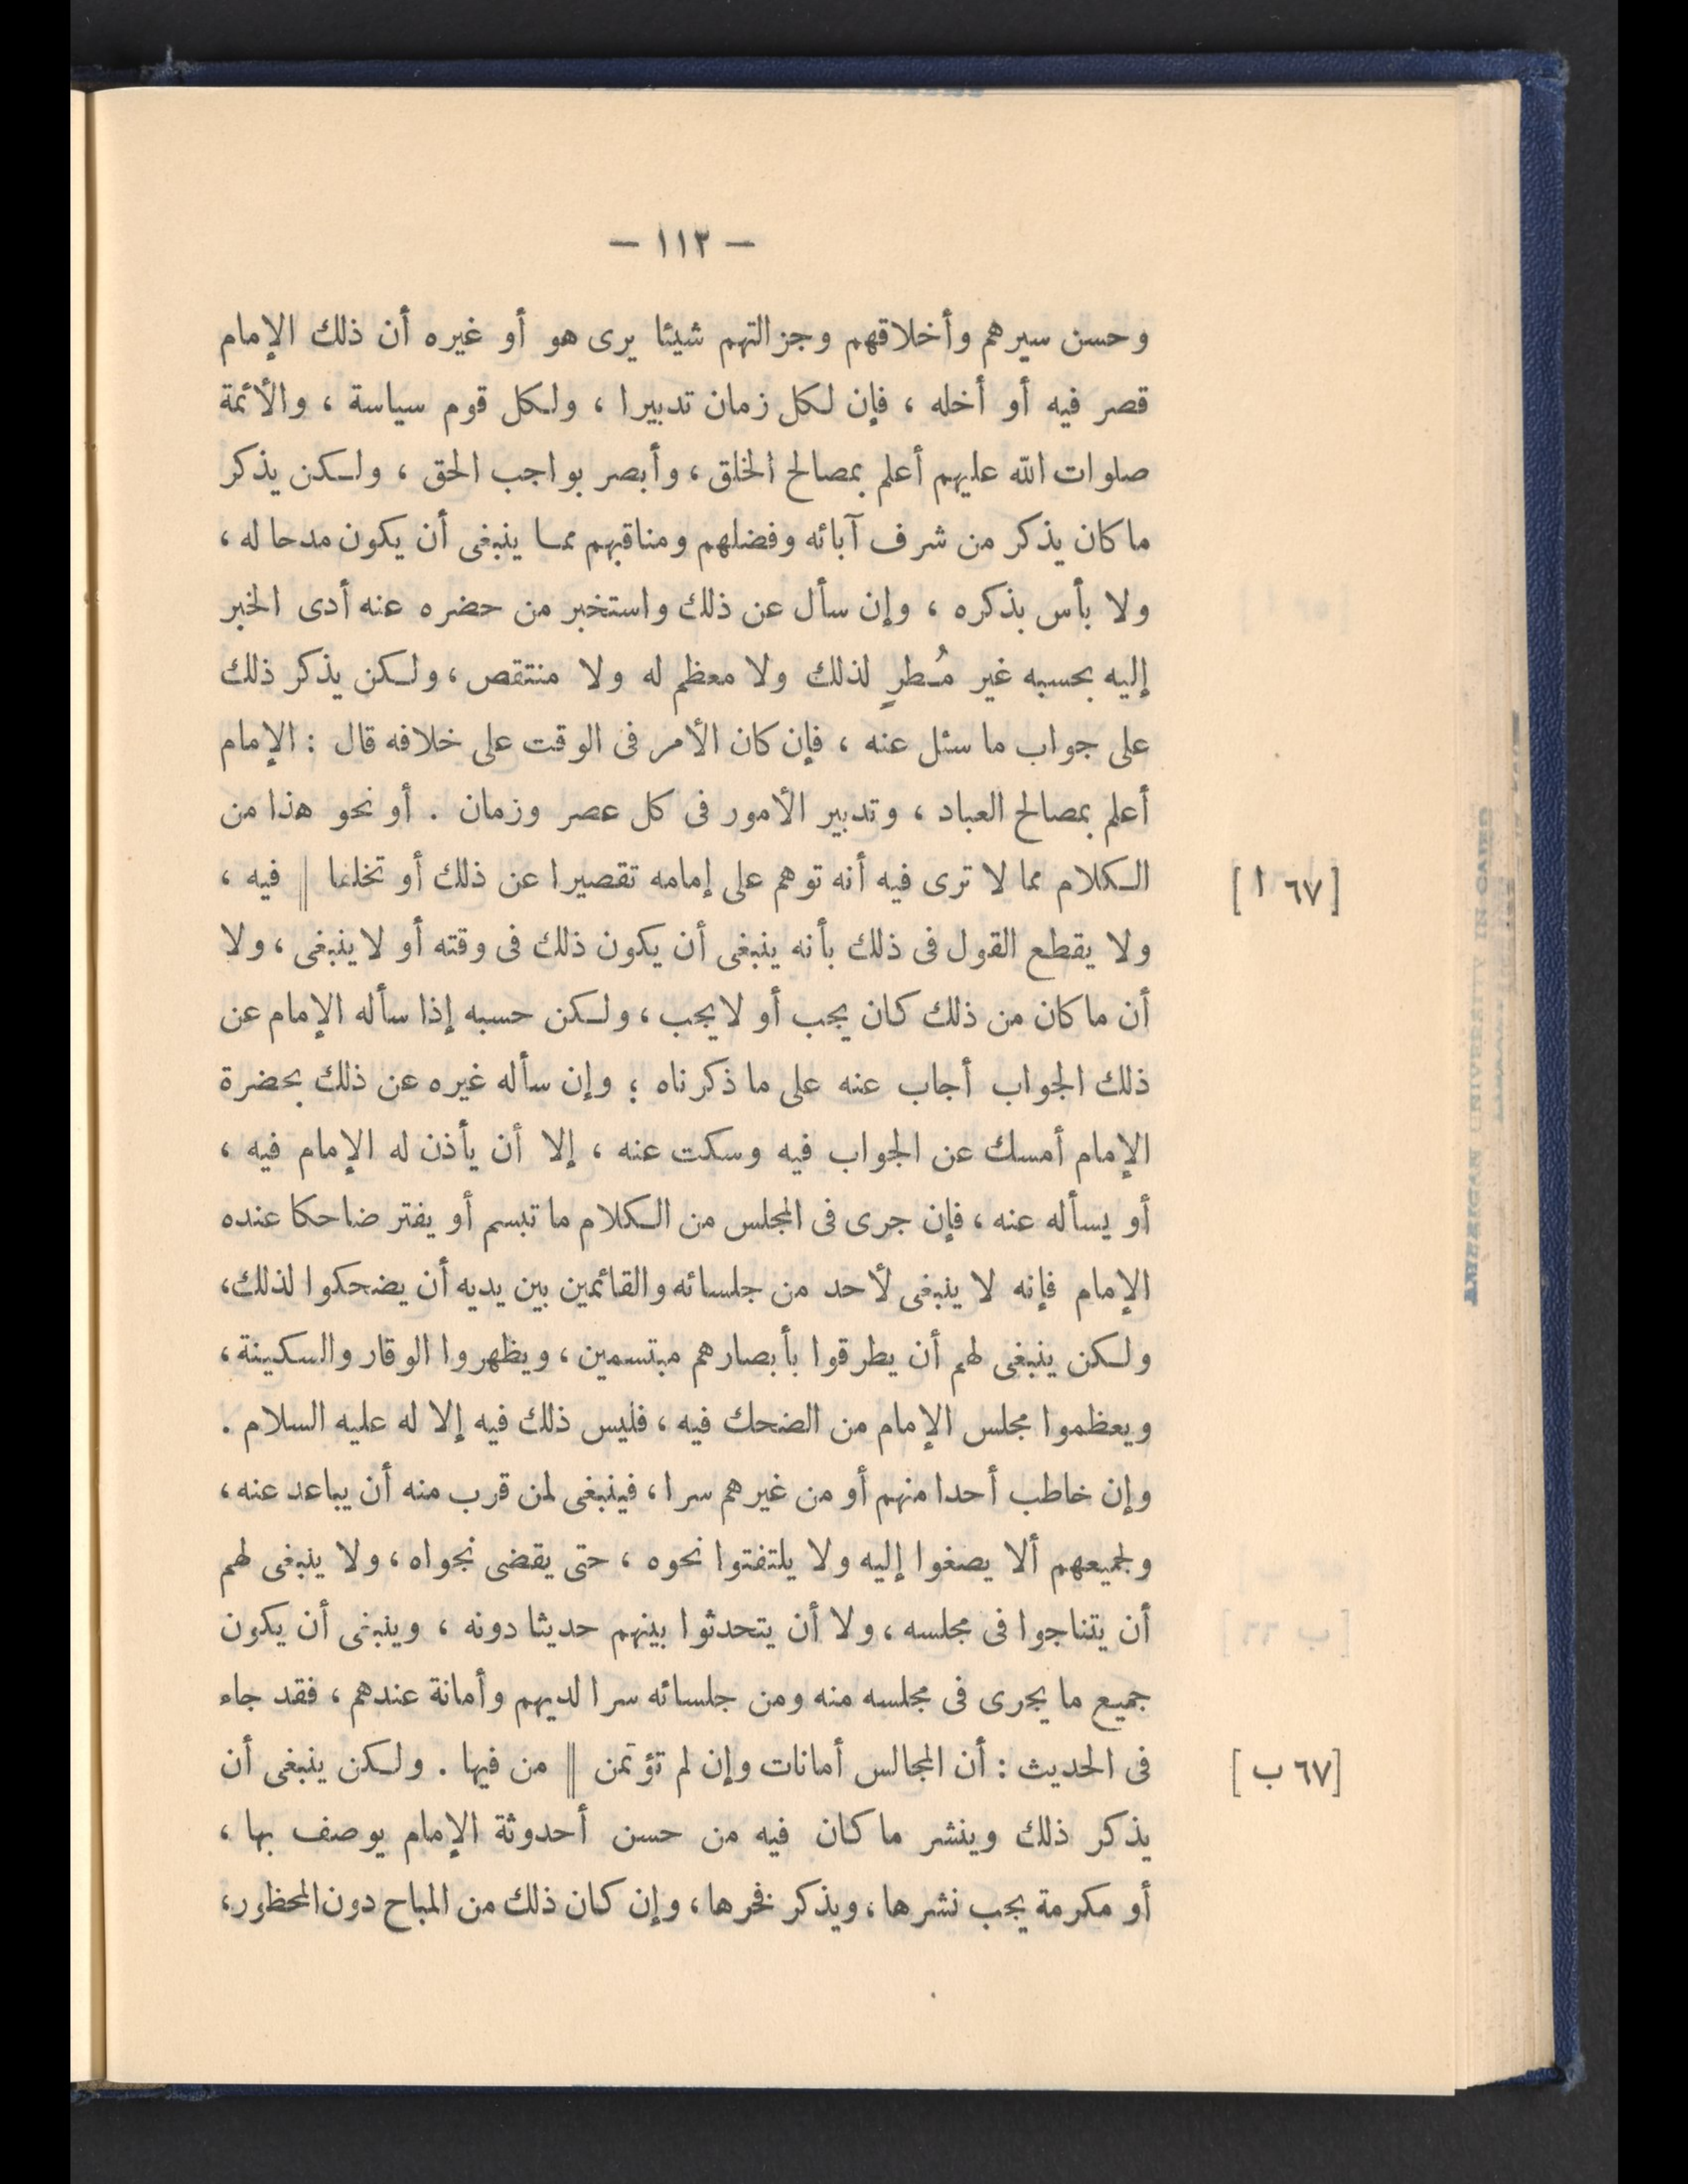 — ١١٣ —
وحسن سيرهم وأخلاقهم وجزالتهم شيئا يرى هو أو غيره أن ذلك الإمام
قصر فيه أو أخله ، فإن لكل زمان تدبيرا ، ولكل قوم سياسة ، والأئمة
صلوات الله عليهم أعلم بمصالح الخلق ، وأبصر بواجب الحق ، ولكن يذكر
ما كان يذكر من شرف آبائه وفضلهم ومناقبهم مما ينبغى أن يكون مدحا له ،
ولا بأس بذكره ، وإن سأل عن ذلك واستخبر من حضره عنه أدى الخبر
إليه بحسبه غير مُطرٍ لذلك ولا معظم له ولا منتقص ، ولكن يذكر ذلك
على جواب ما سئل عنه ، فإن كان الأمر فى الوقت على خلافه قال : الإمام
أعلم بمصالح العباد ، وتدبير الأمور فى كل عصر وزمان . أو نحو هذا من
الكلام مما لا ترى فيه أنه توهم على إمامه تقصيرا عن ذلك أو تخلفا ‖ فيه ، [ ٦٧ ا ]
ولا يقطع القول فى ذلك بأنه ينبغى أن يكون ذلك فى وقته أو لا ينبغى ، ولا
أن ما كان من ذلك كان يجب أو لا يجب ، ولكن حسبه إذا سأله الإمام عن
ذلك الجواب أجاب عنه على ما ذكرناه ؛ وإن سأله غيره عن ذلك بحضرة
الإمام أمسك عن الجواب فيه وسكت عنه ، إلا أن يأذن له الإمام فيه ،
أو يسأله عنه ، فإن جرى فى المجلس من الكلام ما تبسم أو يفتر ضاحكا عنده
الإمام فإنه لا ينبغى لأحد من جلسائه والقائمين بين يديه أن يضحكوا لذلك ،
ولكن ينبغى لهم أن يطرقوا بأبصارهم مبتسمين ، ويظهروا الوقار والسكينة ،
ويعظموا مجلس الإمام من الضحك فيه ، فليس ذلك فيه إلا له عليه السلام .
وإن خاطب أحدا منهم أو من غيرهم سرا ، فينبغى لمن قرب منه أن يباعد عنه ،
ولجميعهم ألا يصغوا إليه ولا يلتفتوا نحوه ، حتى يقضى نجواه ، ولا ينبغى لهم
أن يتناجوا فى مجلسه ، ولا أن يتحدثوا بينهم حديثا دونه ، وينبغى أن يكون
جميع ما يجرى فى مجلسه منه ومن جلسائه سرا لديهم وأمانة عندهم ، فقد جاء
فى الحديث : أن المجالس أمانات وإن لم تؤتمن ‖ من فيها . ولكن ينبغى أن [ ٦٧ ب ]
يذكر ذلك وينشر ما كان فيه من حسن أحدوثة الإمام يوصف بها ،
أو مكرمة يجب نشرها ، ويذكر نخرها ، وإن كان ذلك من المباح دون المحظور ،